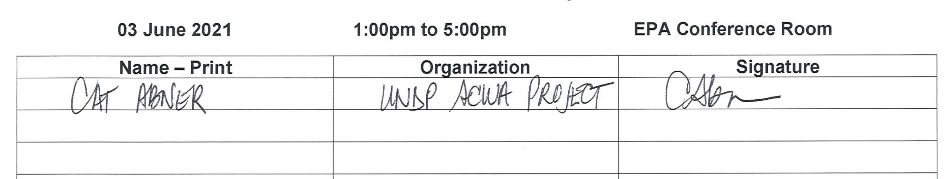 03 June 2021 1:00pm to 5:00pm EPA Conference Room
Name – Print Organization Signature
CAT ABNER UNDP ACWA PROJECT CAbn